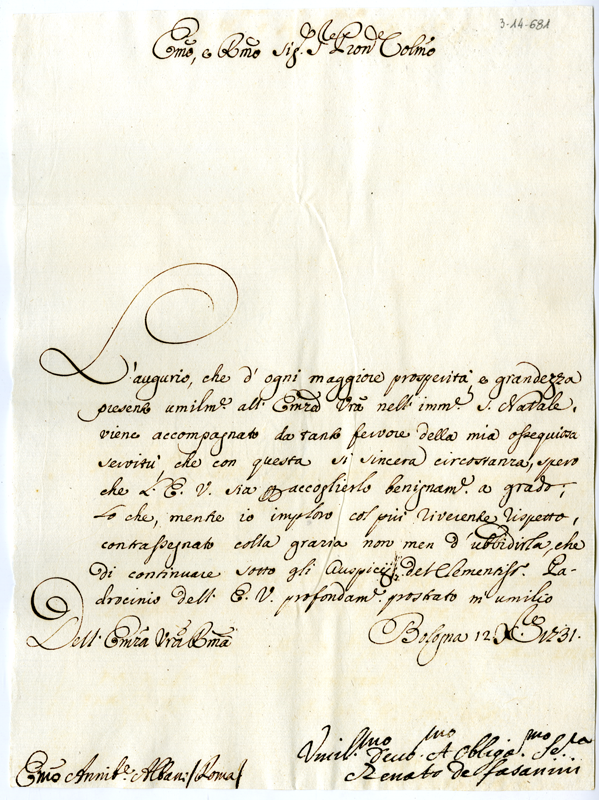 3-14-681
Emo, e Rmo Sig.re Pron.e Colmo
L'augurio, che d'ogni maggiore prosperità, e grandezza
presento umilm.e all' Emza Vra nell' imm.e S. Natale,
viene accompagnato da tanto fervore della mia ossequiosa
servitù, che con questa si sincera circostanza, spero
che L' E. V. sia p accoglierlo benignam.e a grado;
Lo che, mentre io imploro col più riverente rispetto,
contrassegnato colla grazia non men d'ubbidirla, che
di continuare sotto gli Auspicij del Clementiss.o Pa-
drocinio dell' E. V. profondam.e prostrato m' umilio
Dell' Emza Vra Rma Bologna 12 Xbre 1731.
Umil.mo dev.mo Obblig.mo Se.re
Emo Annib.e Albani / Roma / Renato de Fasanini